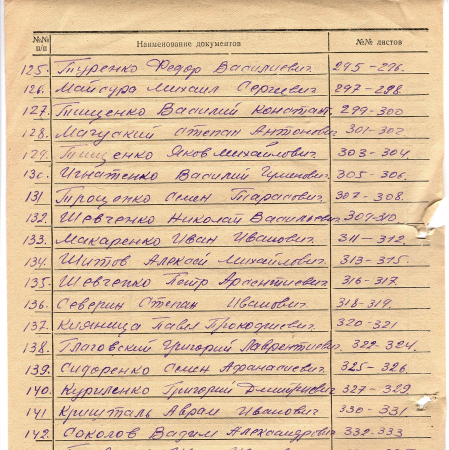 №№ п/п Наименование документов №№ листов
125. Туренко Федор Васильевич 295-296.
126. Майсура Михаил Сергеевич 297-298
127. Тищенко Василий Констант. 299-300
128. Магуский Степан Антонович 301-302
129. Тищенко Яков Михайлович 303-304.
130. Игнатенко Василий 305-306.
131 Троценко Семен Тарасович 307-308.
132. Шевченко Николай Васильевич 309-310.
133. Макаренко Иван Иванович 311-312.
134. Шитов Алексей Михайлович 313-315.
135. Шевченко Петр Арсентиевич 316-317.
136. Северин Степан Иванович 318-319.
137. Кияница Павел Прокофиевич 320-321
138. Глаговский Григорий Лаврентиевич 322-324.
139. Сидоренко Семен Афанасиевич 325-326.
140. Куриленко Григорий Дмитриевич 327-329
141 Кришталь Аврам Иванович 330-331
142. Соколов Вадим Александрович 332-333